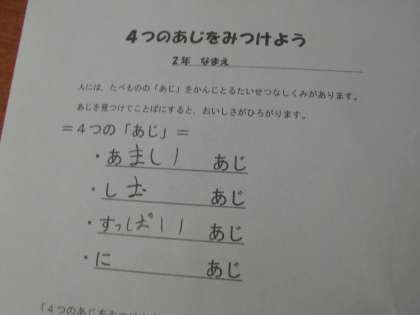 4つのあじをみつけよう
2年 なまえ
人には、たべものの「あじ」をかんじとるたいせつなしくみがあります。
あじを見つけてことばにすると、おいしさがひろがります。
＝4つの「あじ」＝
・あましい あじ
・し あじ
・すっぱいい あじ
・に あじ
「4つのあじをみつけ